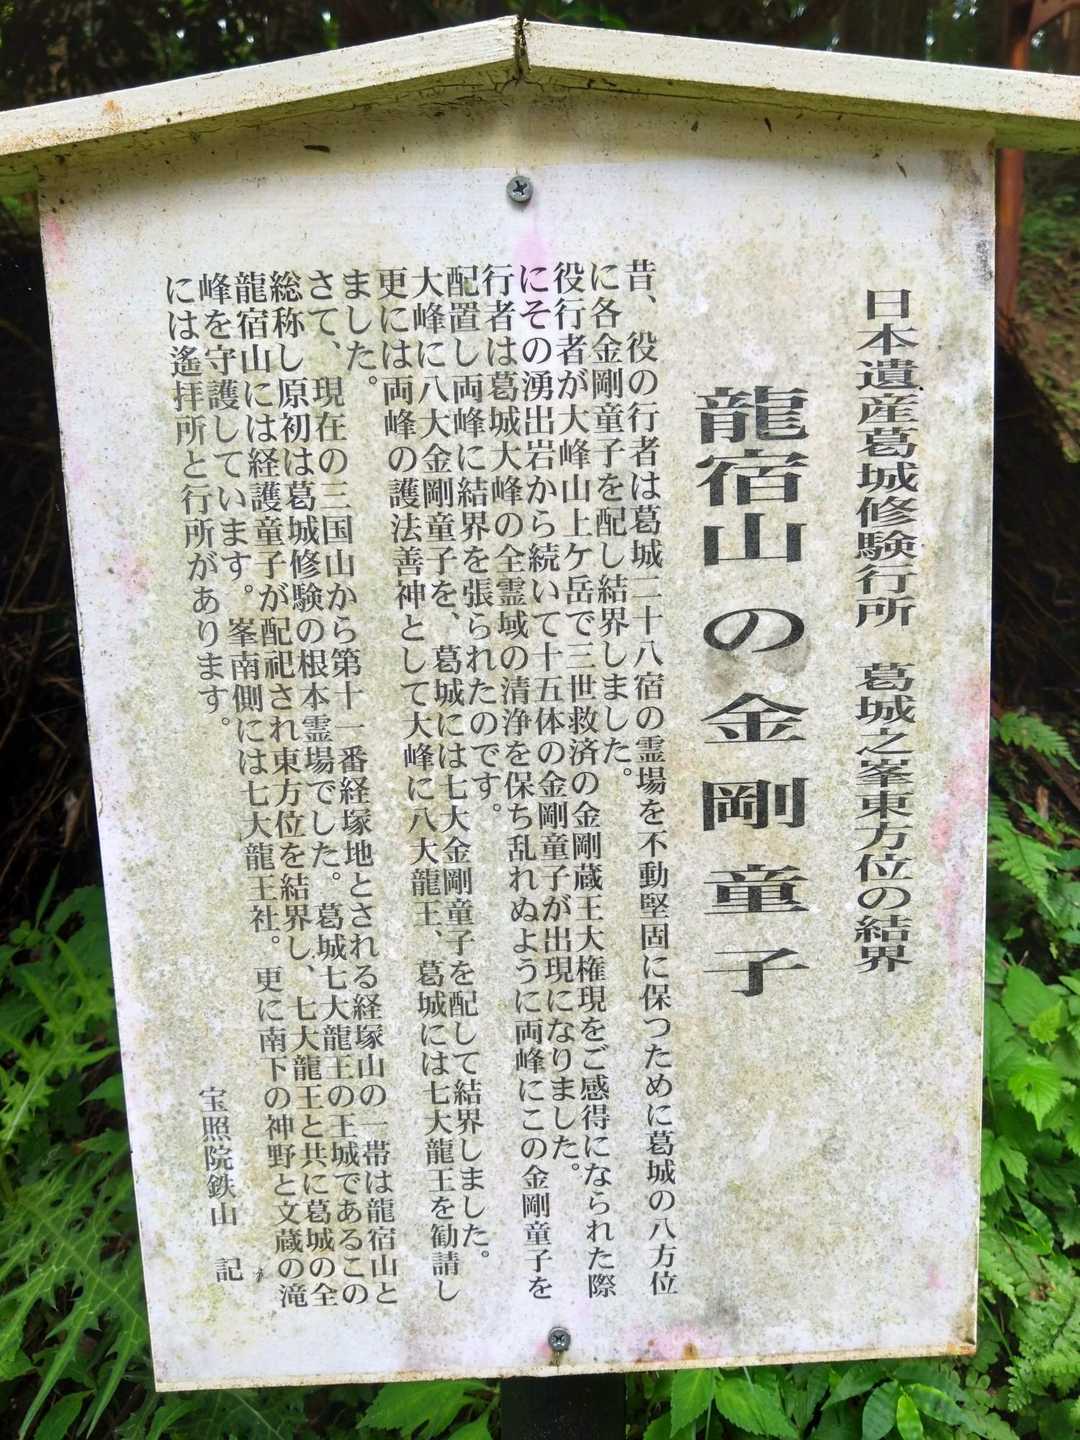 日本遺産葛城修験行所　葛城之峯東方位の結界
龍宿山の金剛童子
昔、役の行者は葛城二十八宿の霊場を不動堅固に保つために葛城の八方位
に各金剛童子を配し結界しました。
役行者が大峰山上ケ岳で三世救済の金剛蔵王大権現をご感得になられた際
にその湧出岩から続いて十五体の金剛童子が出現になりました。
行者は葛城大峰の全霊域の清浄を保ち乱れぬように両峰にこの金剛童子を
配置し両峰に結界を張られたのです。
大峰に八大金剛童子を、葛城には七大金剛童子を配して結界しました。
更には両峰の護法善神として大峰に八大龍王、葛城には七大龍王を勧請し
ました。
さて、現在の三国山から第十一番経塚地とされる経塚山の一帯は龍宿山と
総称し原初は葛城修験の根本霊場でした。葛城七大龍王の王城であるこの
龍宿山には経護童子が配祀され東方位を結界し、七大龍王と共に葛城の全
峰を守護しています。峯南側には七大龍王社。更に南下の神野と文蔵の滝
には遙拝所と行所があります。
宝照院鉄山　記